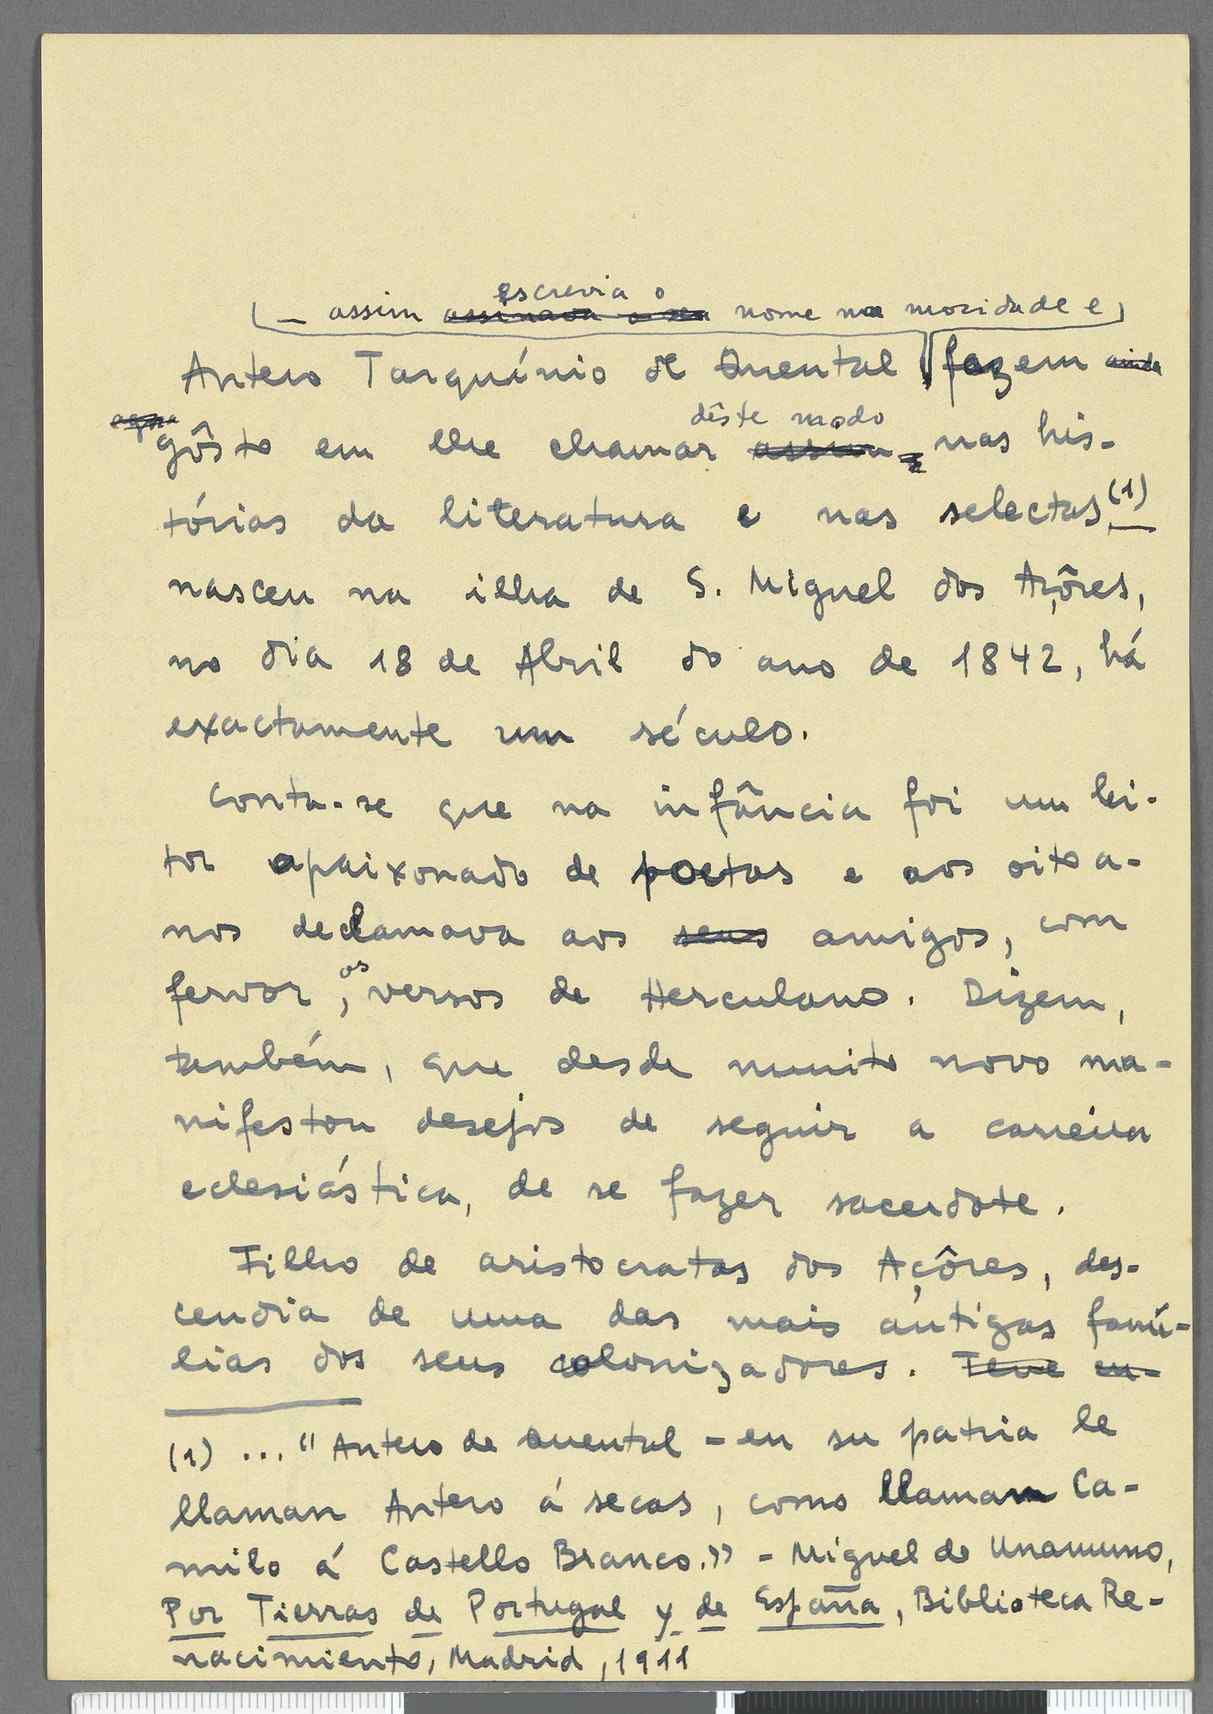 escrevia o
— assim assinava o seu nome na mocidade e
Antero Tarquínio de Quental fazem ainda
gôsto em lhe chamar assim, nas his-
dêste modo
tórias da literatura e nas selectas (1)
nasceu na ilha de S. Miguel dos Açôres,
no dia 18 de Abril do ano de 1842, há
exactamente um século.
Conta-se que na infância foi um lei-
tor apaixonado de poetas e aos oito a-
nos declamava aos seus amigos, com
fervor, os versos de Herculano. Dizem,
também, que desde muito novo ma-
nifestou desejos de seguir a carreira
eclesiástica, de se fazer sacerdote.
Filho de aristocratas dos Açôres, des-
cendia de uma das mais antigas famí-
lias dos seus colonizadores. Teve en-
(1) ... "Antero de Quental - en su patria le
llaman Antero á secas, como llaman Ca-
milo á Castello Branco." - Miguel de Unamuno,
Por Tierras de Portugal y de España, Biblioteca Re-
nacimiento, Madrid, 1911